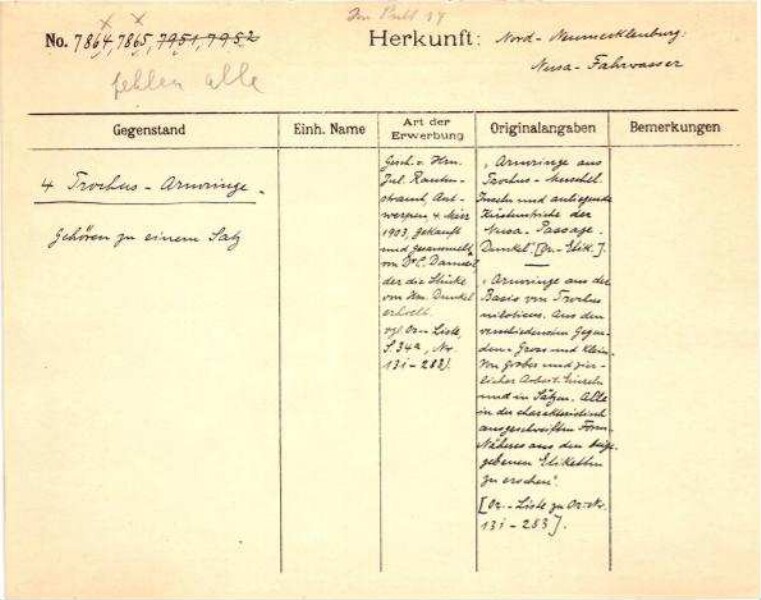 No. 7864, 7865, 7951, 7952
Herkunft: Nord-Neumecklenburg:
Nusa-Fahrwasser
fehlen alle
Gegenstand
Einh. Name
Art der
Erwerbung
Originalangaben
Bemerkungen
4 Trochus-Armringe.
Gehören zu einem Satz
Gesch. v. Hrn.
Jul. Rauten-
strauch, Ant-
werpen, 4. März
1903, gekauft
und gesammelt
von Dr C.
der die Stücke
von Hrn. Dunkel
erhielt.
vgl. Or-Liste,
S. 34a, Nr.
131-283).
"Armringe aus
Trochus-Muschel.
Inseln und anliegende
Küstenstriche der
Nusa-Passage.
Dunkel". [Or-Etik.].
"Armringe aus der
Basis von Trochus
niloticus. Aus den
verschiedensten Gegen-
den. Gross und klein.
Von grober und zier-
licher Arbeit. Einzeln
und in Sätzen. Alle
in der charakteristisch
ausgeschweiften Form.
Näheres aus den beige-
gebenen Etiketten
zu ersehen".
[Or.-Liste zu Or-Nr.
131-283].